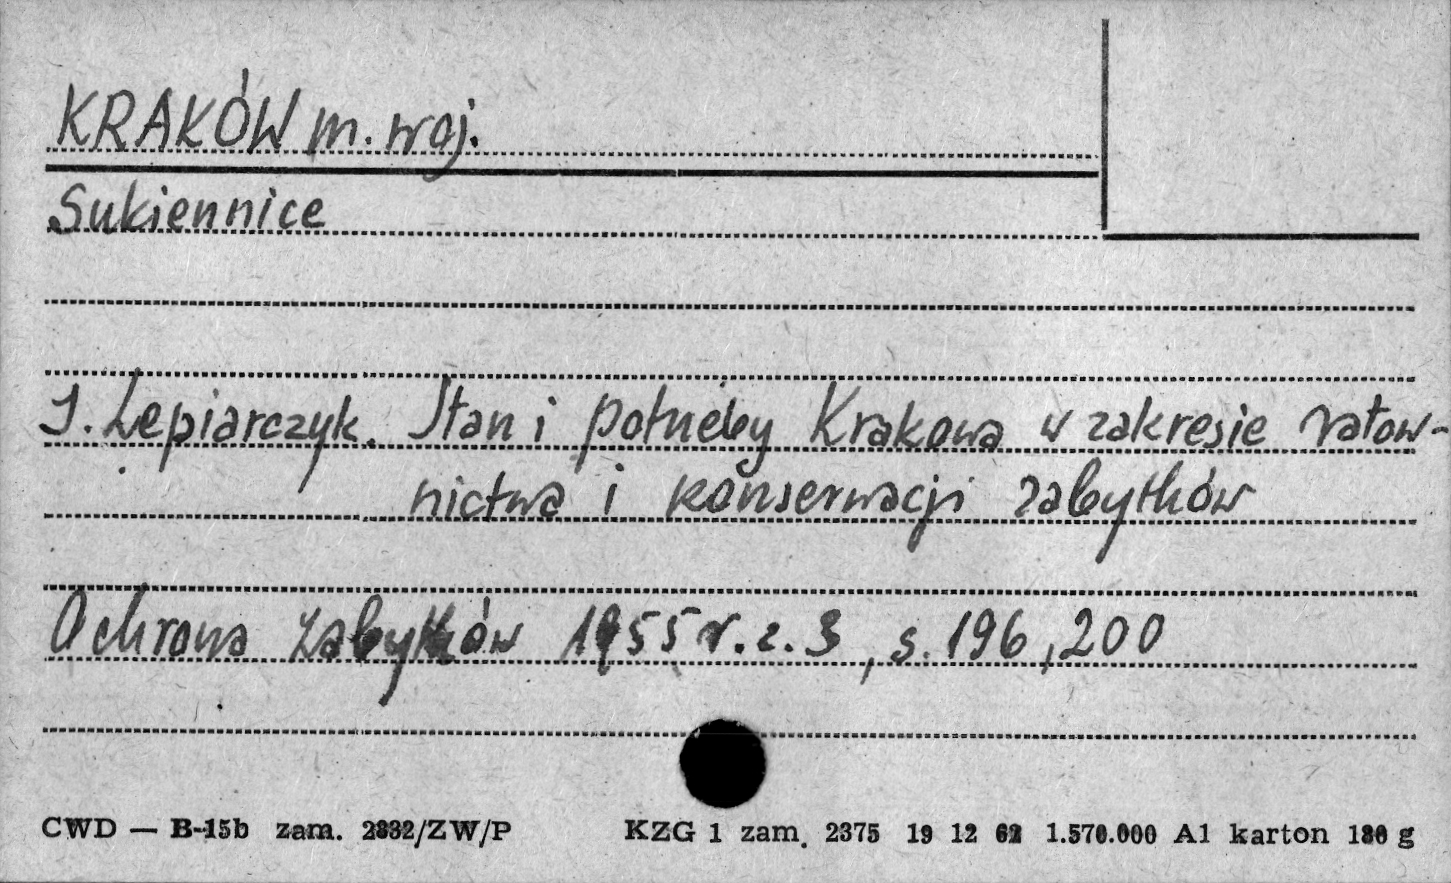 KRAKÓW m. woj.
Sukiennice
J. Lepiarczyk. Stan i potrzeby Krakowa w zakresie ratow-
nictwa i konserwacji zabytków
Ochrona zabytków 1955 r. z. 3, s. 196, 200
CWD — B-15b zam. 2332/ZW/P KZG 1 zam. 2375 19 12 62 1.570.000 A1 karton 180 g